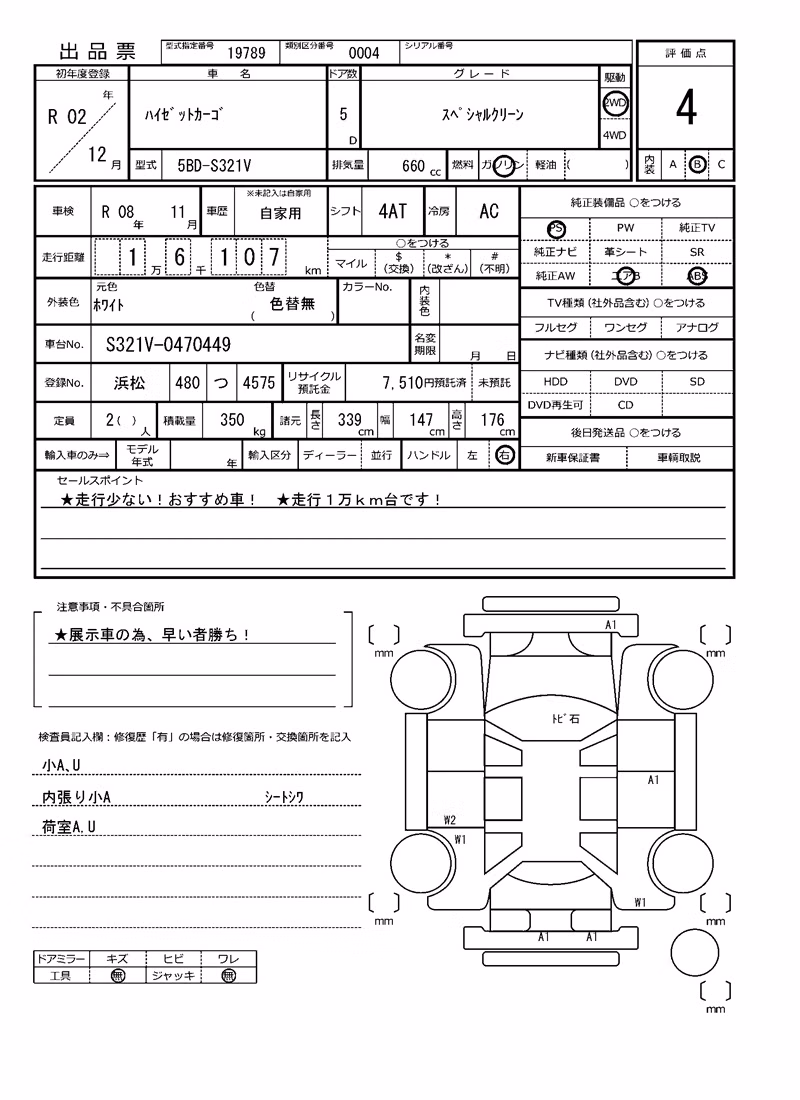 出品票 型式指定番号 19789 類別区分番号 0004 シリアル番号
評価点
初年度登録 車名 ドア数 グレード 駆動
R 02 年 12 月 ハイゼットカーゴ 5 D スペシャルクリーン 2WD 4WD
4
型式 5BD-S321V 排気量 660 cc 燃料 ガソリン 軽油 ( )
内装 A B C
車検 R 08 年 11 月 車歴 ※未記入は自家用 自家用 シフト 4AT 冷房 AC
純正装備品 ○をつける
PS PW 純正TV
純正ナビ 革シート SR
純正AW エアB ABS
走行距離 1 万 6 千 1 0 7 km
○をつける
マイル $ (交換) * (改ざん) # (不明)
外装色 元色 ホワイト 色替 ( 色替無 ) カラーNo. 内装色
TV種類 (社外品含む) ○をつける
フルセグ ワンセグ アナログ
車台No. S321V-0470449 名変期限 月 日
ナビ種類 (社外品含む) ○をつける
HDD DVD SD
DVD再生可 CD
登録No. 浜松 480 つ 4575 リサイクル預託金 7,510円預託済 未預託
定員 2( ) 人 積載量 350 kg 諸元 長さ 339 cm 幅 147 cm 高さ 176 cm
後日発送品 ○をつける
新車保証書 車輌取説
輸入車のみ⇒ モデル年式 年 輸入区分 ディーラー 並行 ハンドル 左 右
セールスポイント
★走行少ない!おすすめ車! ★走行1万km台です!
注意事項・不具合箇所
★展示車の為、早い者勝ち!
検査員記入欄:修復歴「有」の場合は修復箇所・交換箇所を記入
小A、U
内張り小A シートシワ
荷室A.U
ドアミラー キズ ヒビ ワレ
工具 無 ジャッキ 無
A1
mm mm
トビ石
A1
W2
W1
W1
mm mm
A1 A1
mm